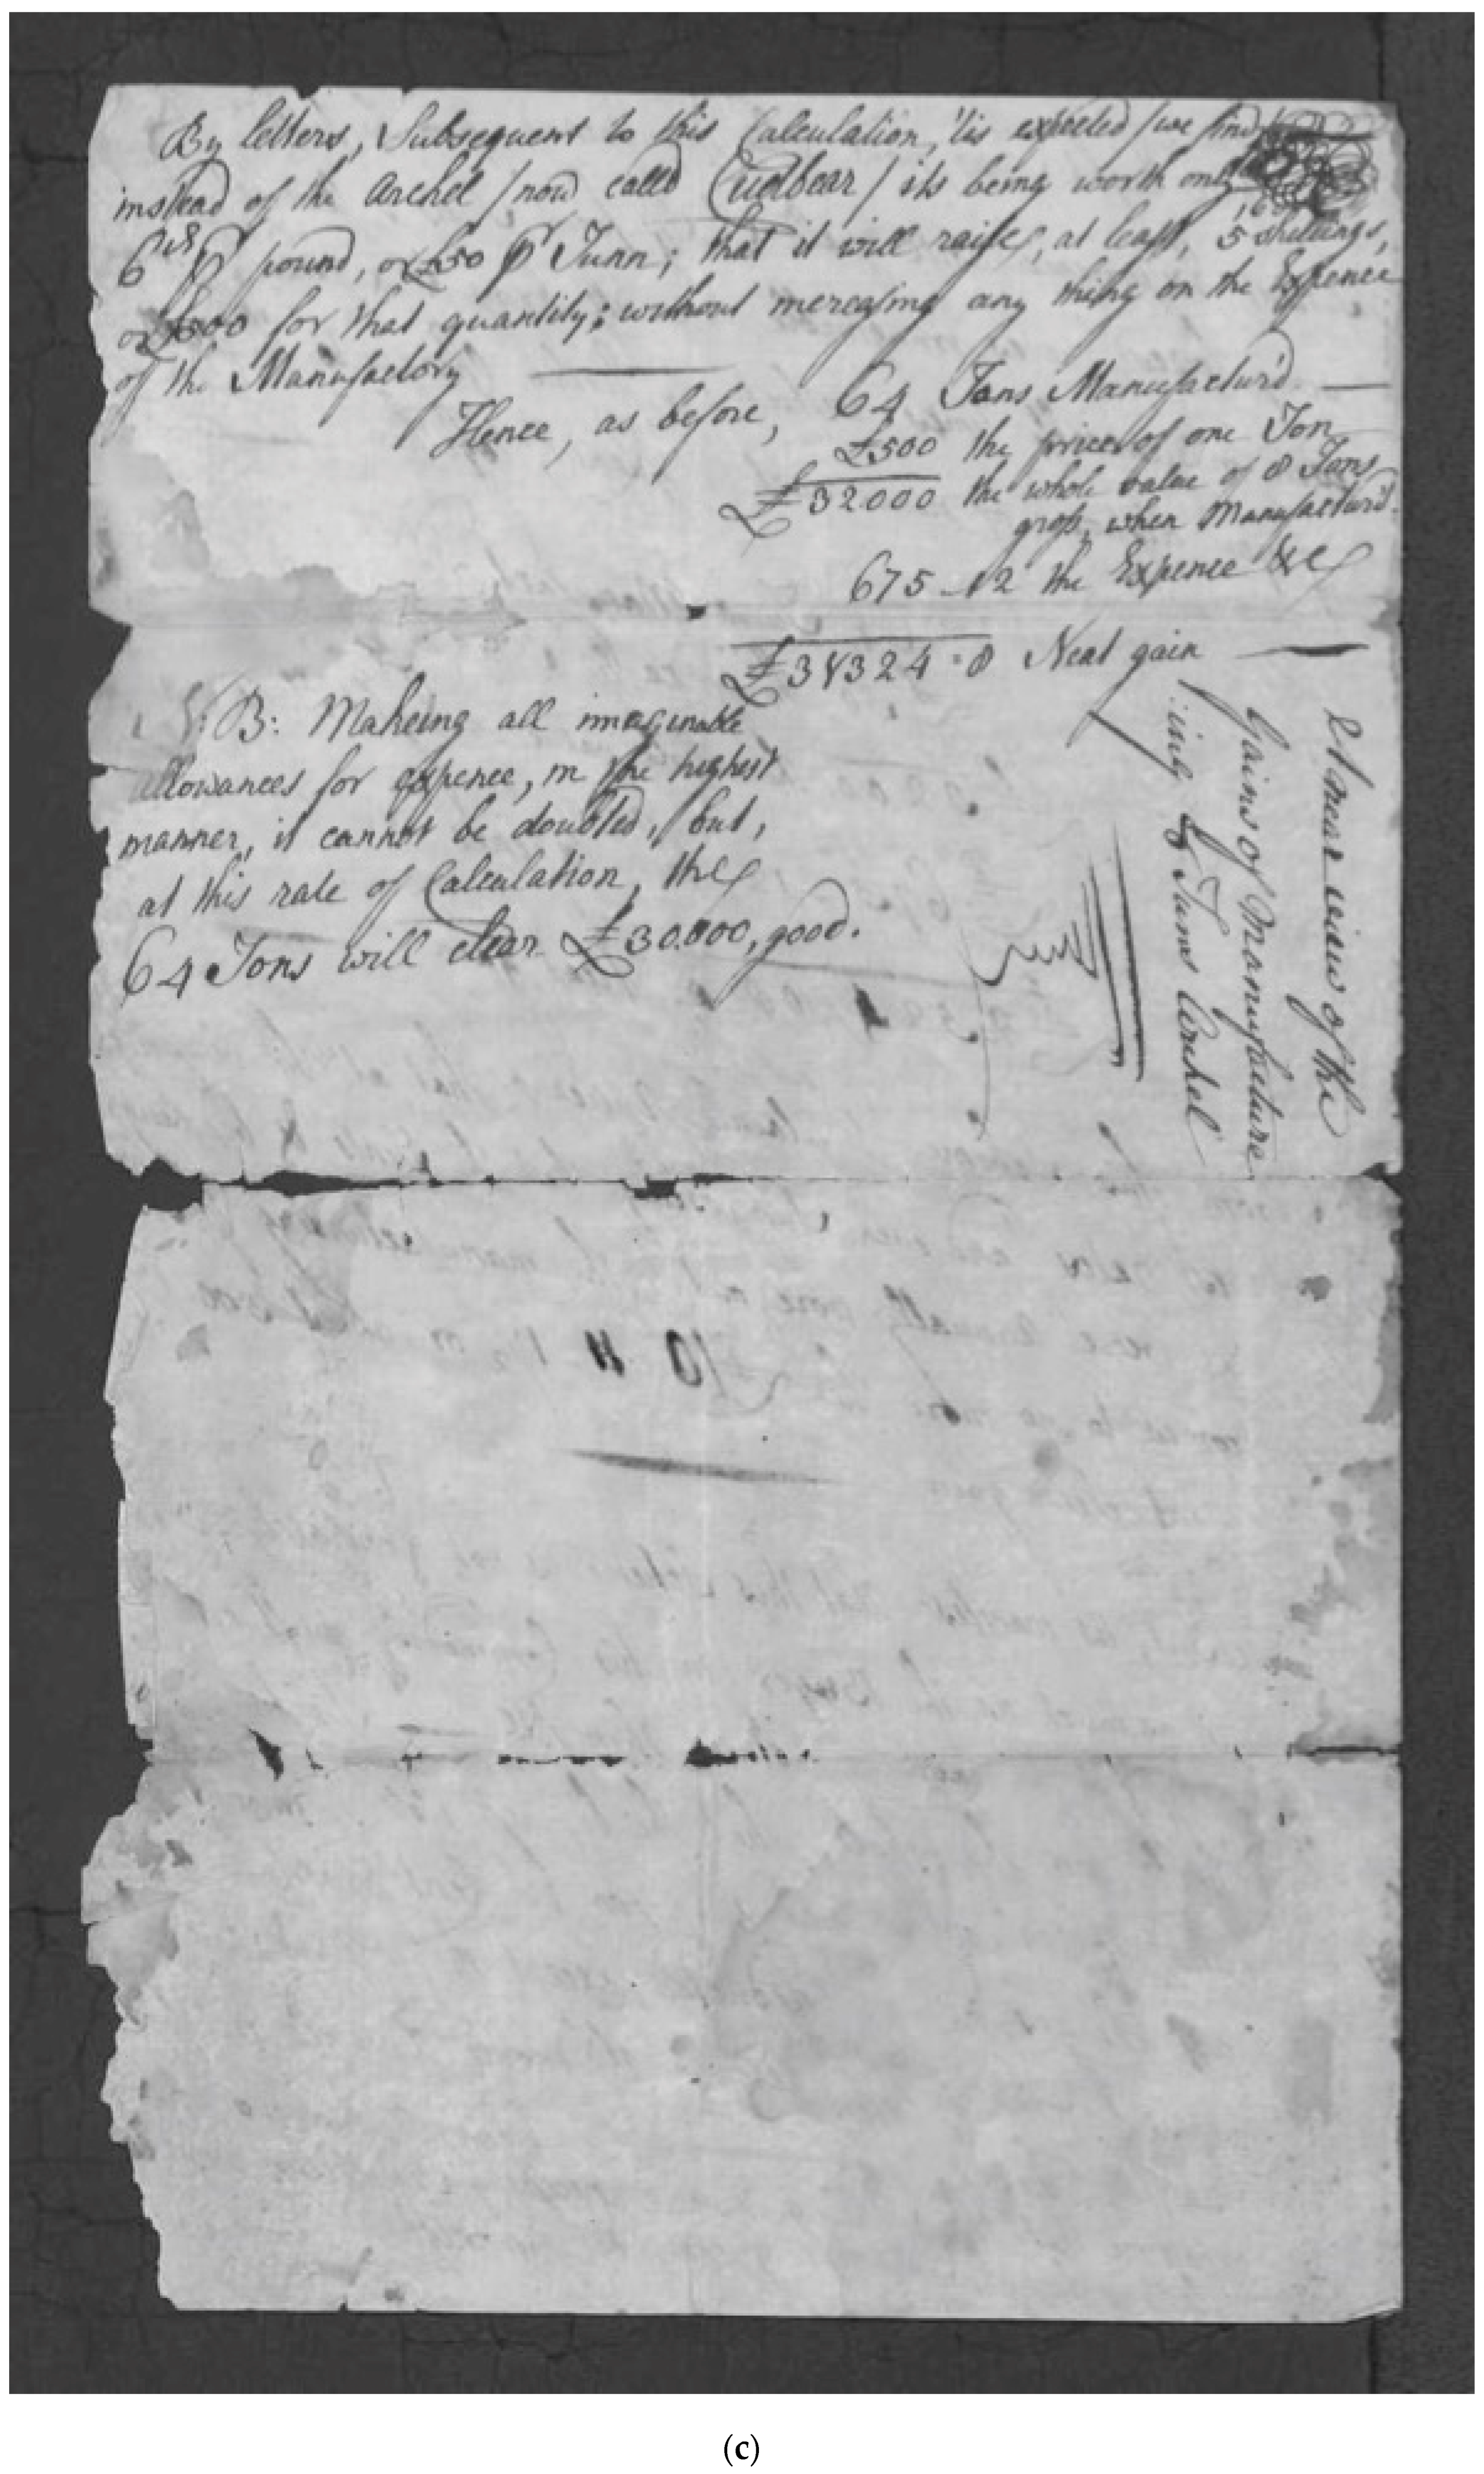 By letters, Subsequent to this Calculation, 'tis expected / we find /
instead of the Archel / now calld Cudbear / its being worth only
6 ₱ pound, or £50 ₱ Tunn; that it will raise, at least, 5 Shillings,
or £500 for that quantity; without increasing any thing on the Expence
of the Manufactory
Hence, as before, 64 Tons Manufactur'd
£500 the price of one Ton
£32000 the whole value of 8 Tons
gross, when Manufactur'd.
675-12 the Expence &c
£31324=8 Neat gain
N:B: Makeing all imaginable
allowances for expence, in the highest
manner, it cannot be doubted, but,
at this rate of Calculation, the
64 Tons will clear £30.000, good.
A near view of the
Gains of Manufacture
:ing 8 Tuns Archel
10 11
(c)